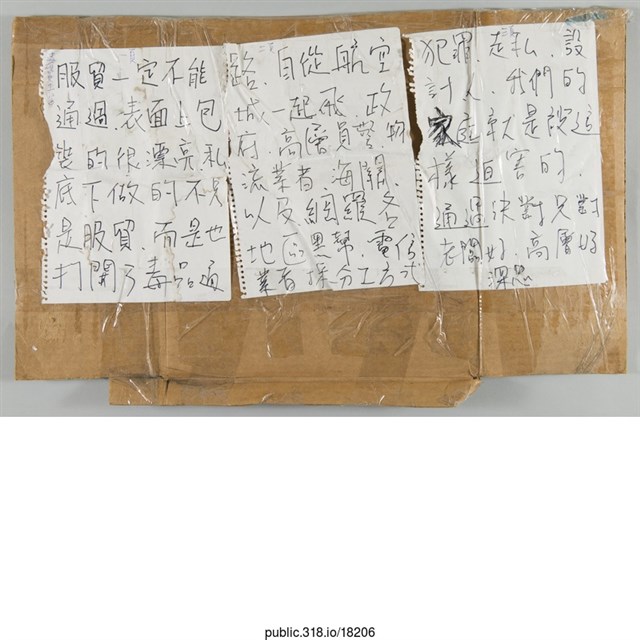 服貿一定不能
通過.表面上包
裝的很漂亮私
底下做的不只
是服貿.而是也
打開了毒品通
路.自從航空
城.一起飛.政
府.高層員警.物
流業者.海關.
以及網羅各
地的黑幫.電信
業者採分工方式
犯罪.走私.設
計人.我們的
家庭就是被這
樣迫害的.
通過決對只對
老闆好.高層好
深思
public.318.io/18206